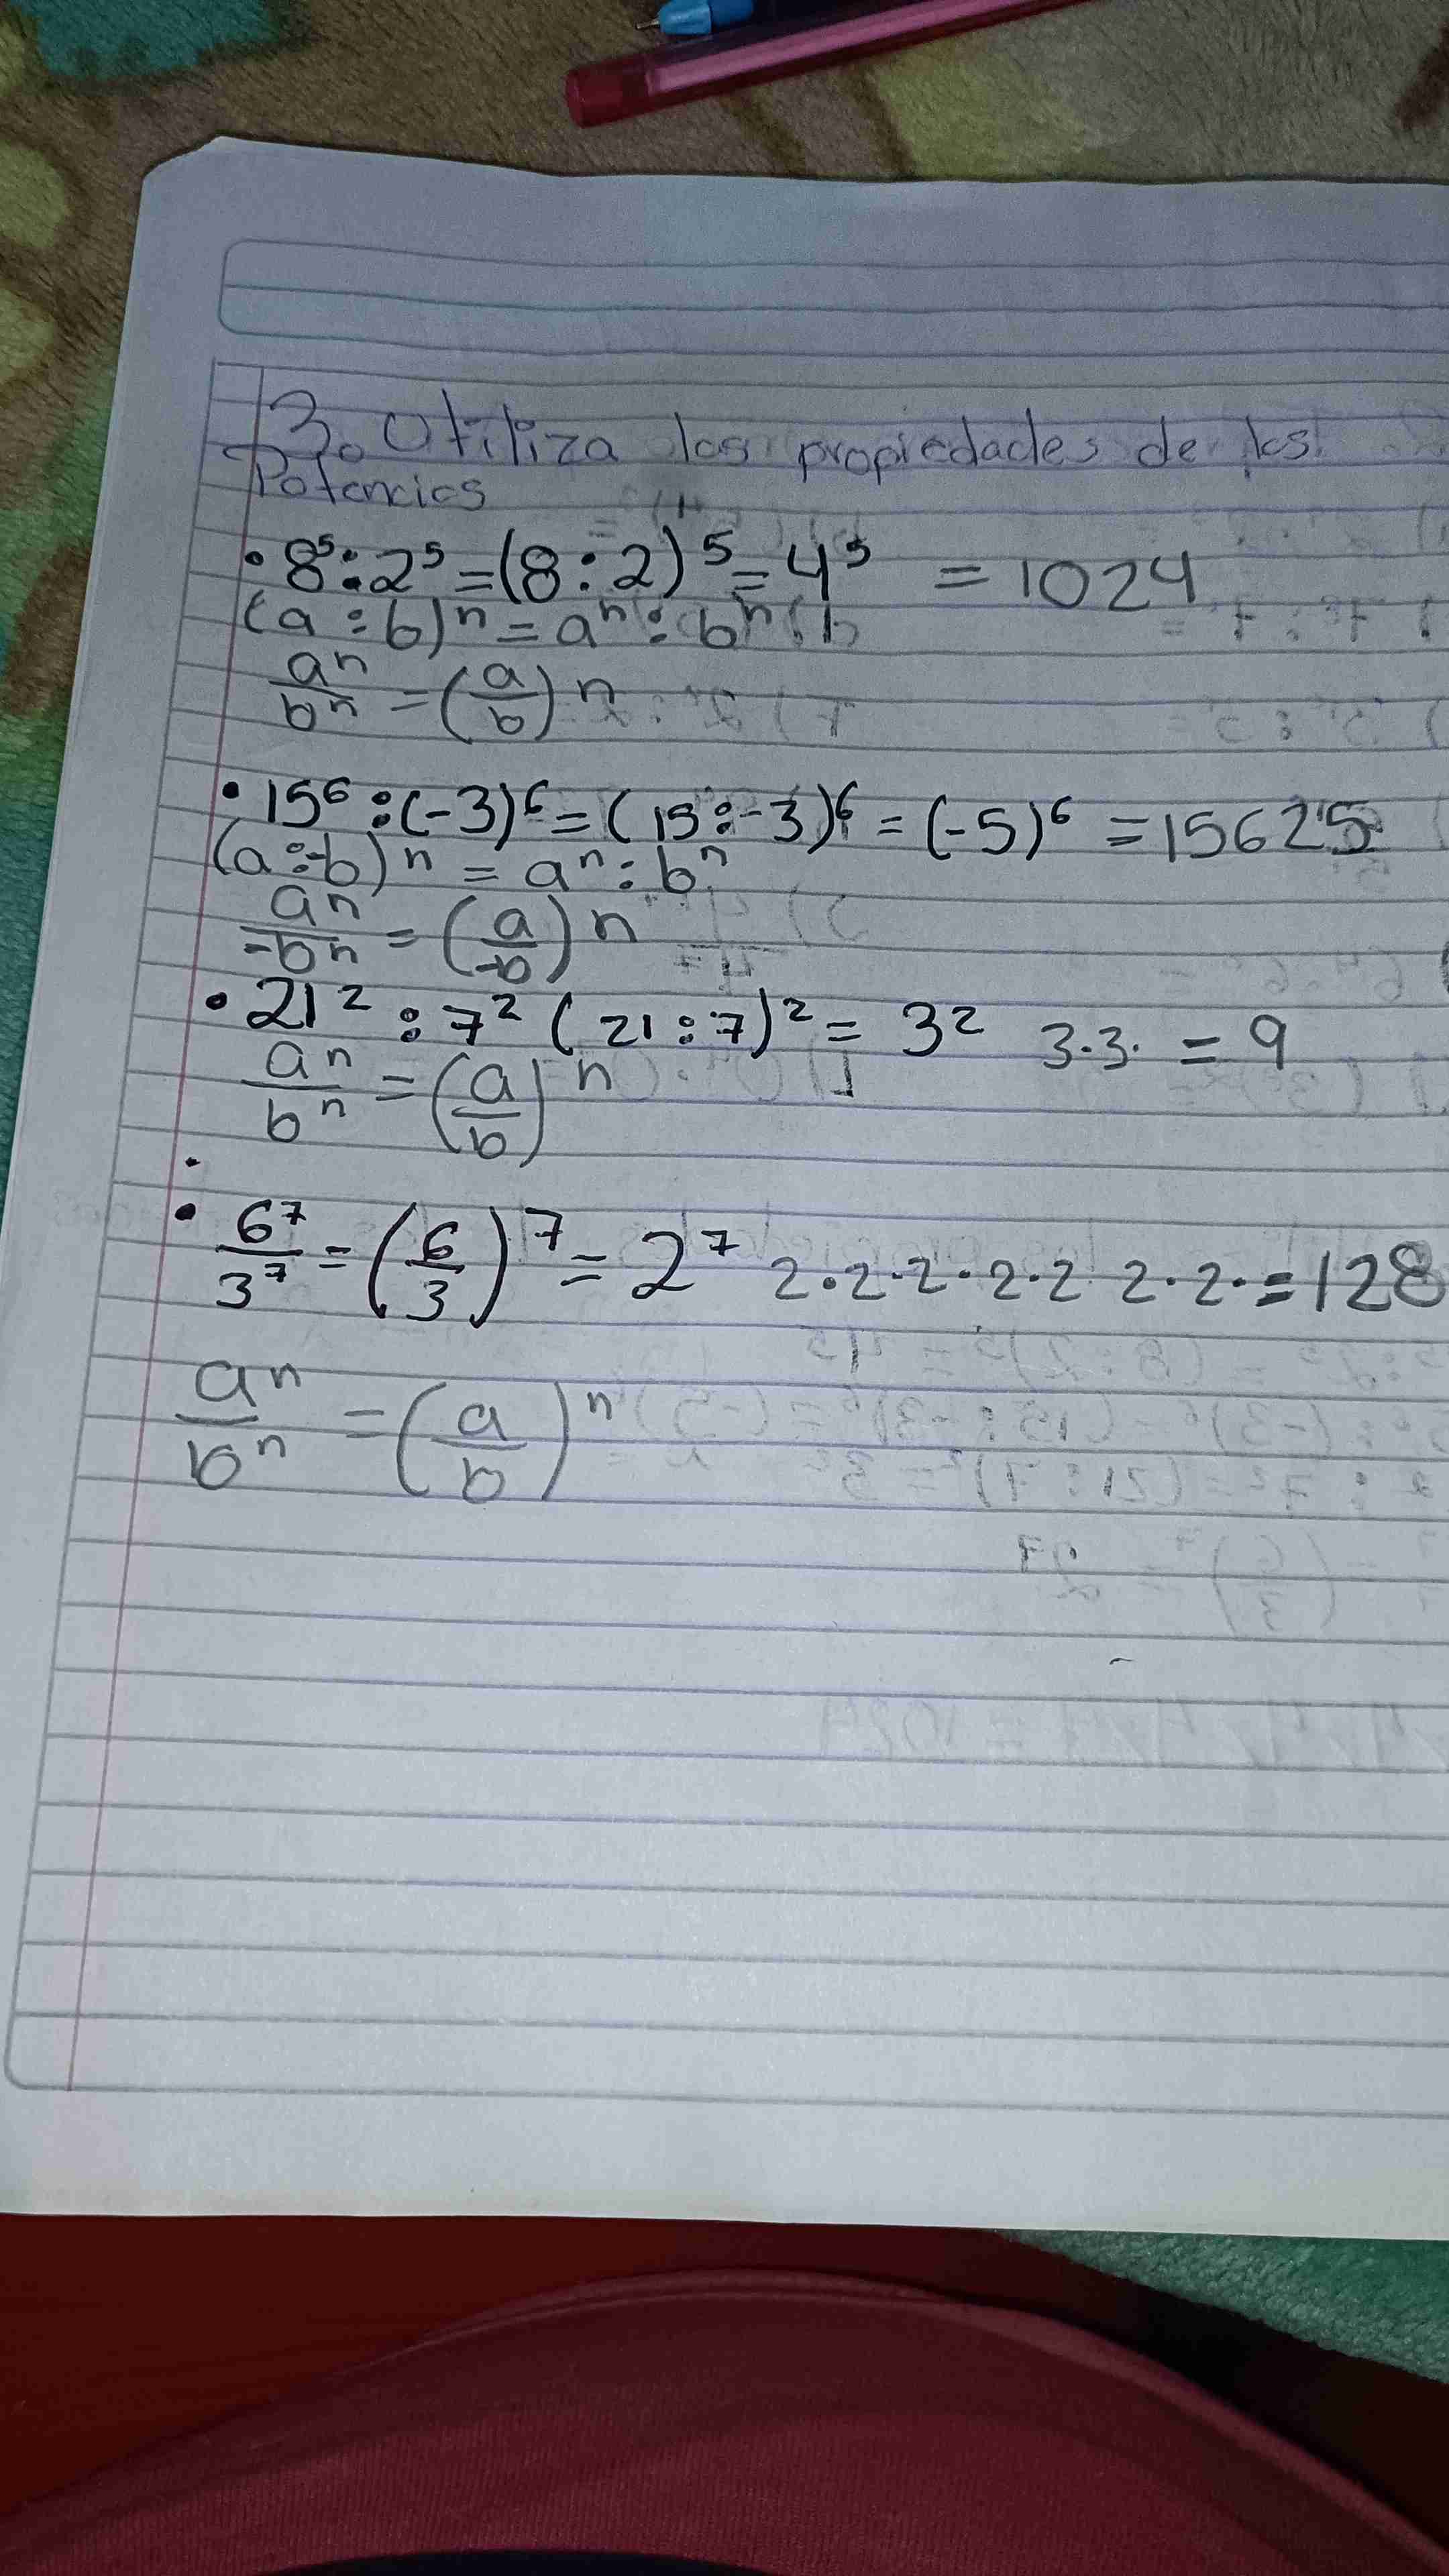 3. Utiliza las propiedades de las
Potencias
• 8⁵ : 2⁵ = (8 : 2)⁵ = 4⁵ = 1024
(a : b)ⁿ = aⁿ : bⁿ
aⁿ/bⁿ = (a/b)ⁿ
• 15⁶ : (-3)⁶ = (15 : -3)⁶ = (-5)⁶ = 15625
(a : -b)ⁿ = aⁿ : bⁿ
aⁿ/-bⁿ = (a/-b)ⁿ
• 21² : 7² (21 : 7)² = 3² 3·3· = 9
aⁿ/bⁿ = (a/b)ⁿ
• 6⁷/3⁷ = (6/3)⁷ = 2⁷ 2·2·2·2·2 2·2· = 128
aⁿ/bⁿ = (a/b)ⁿ